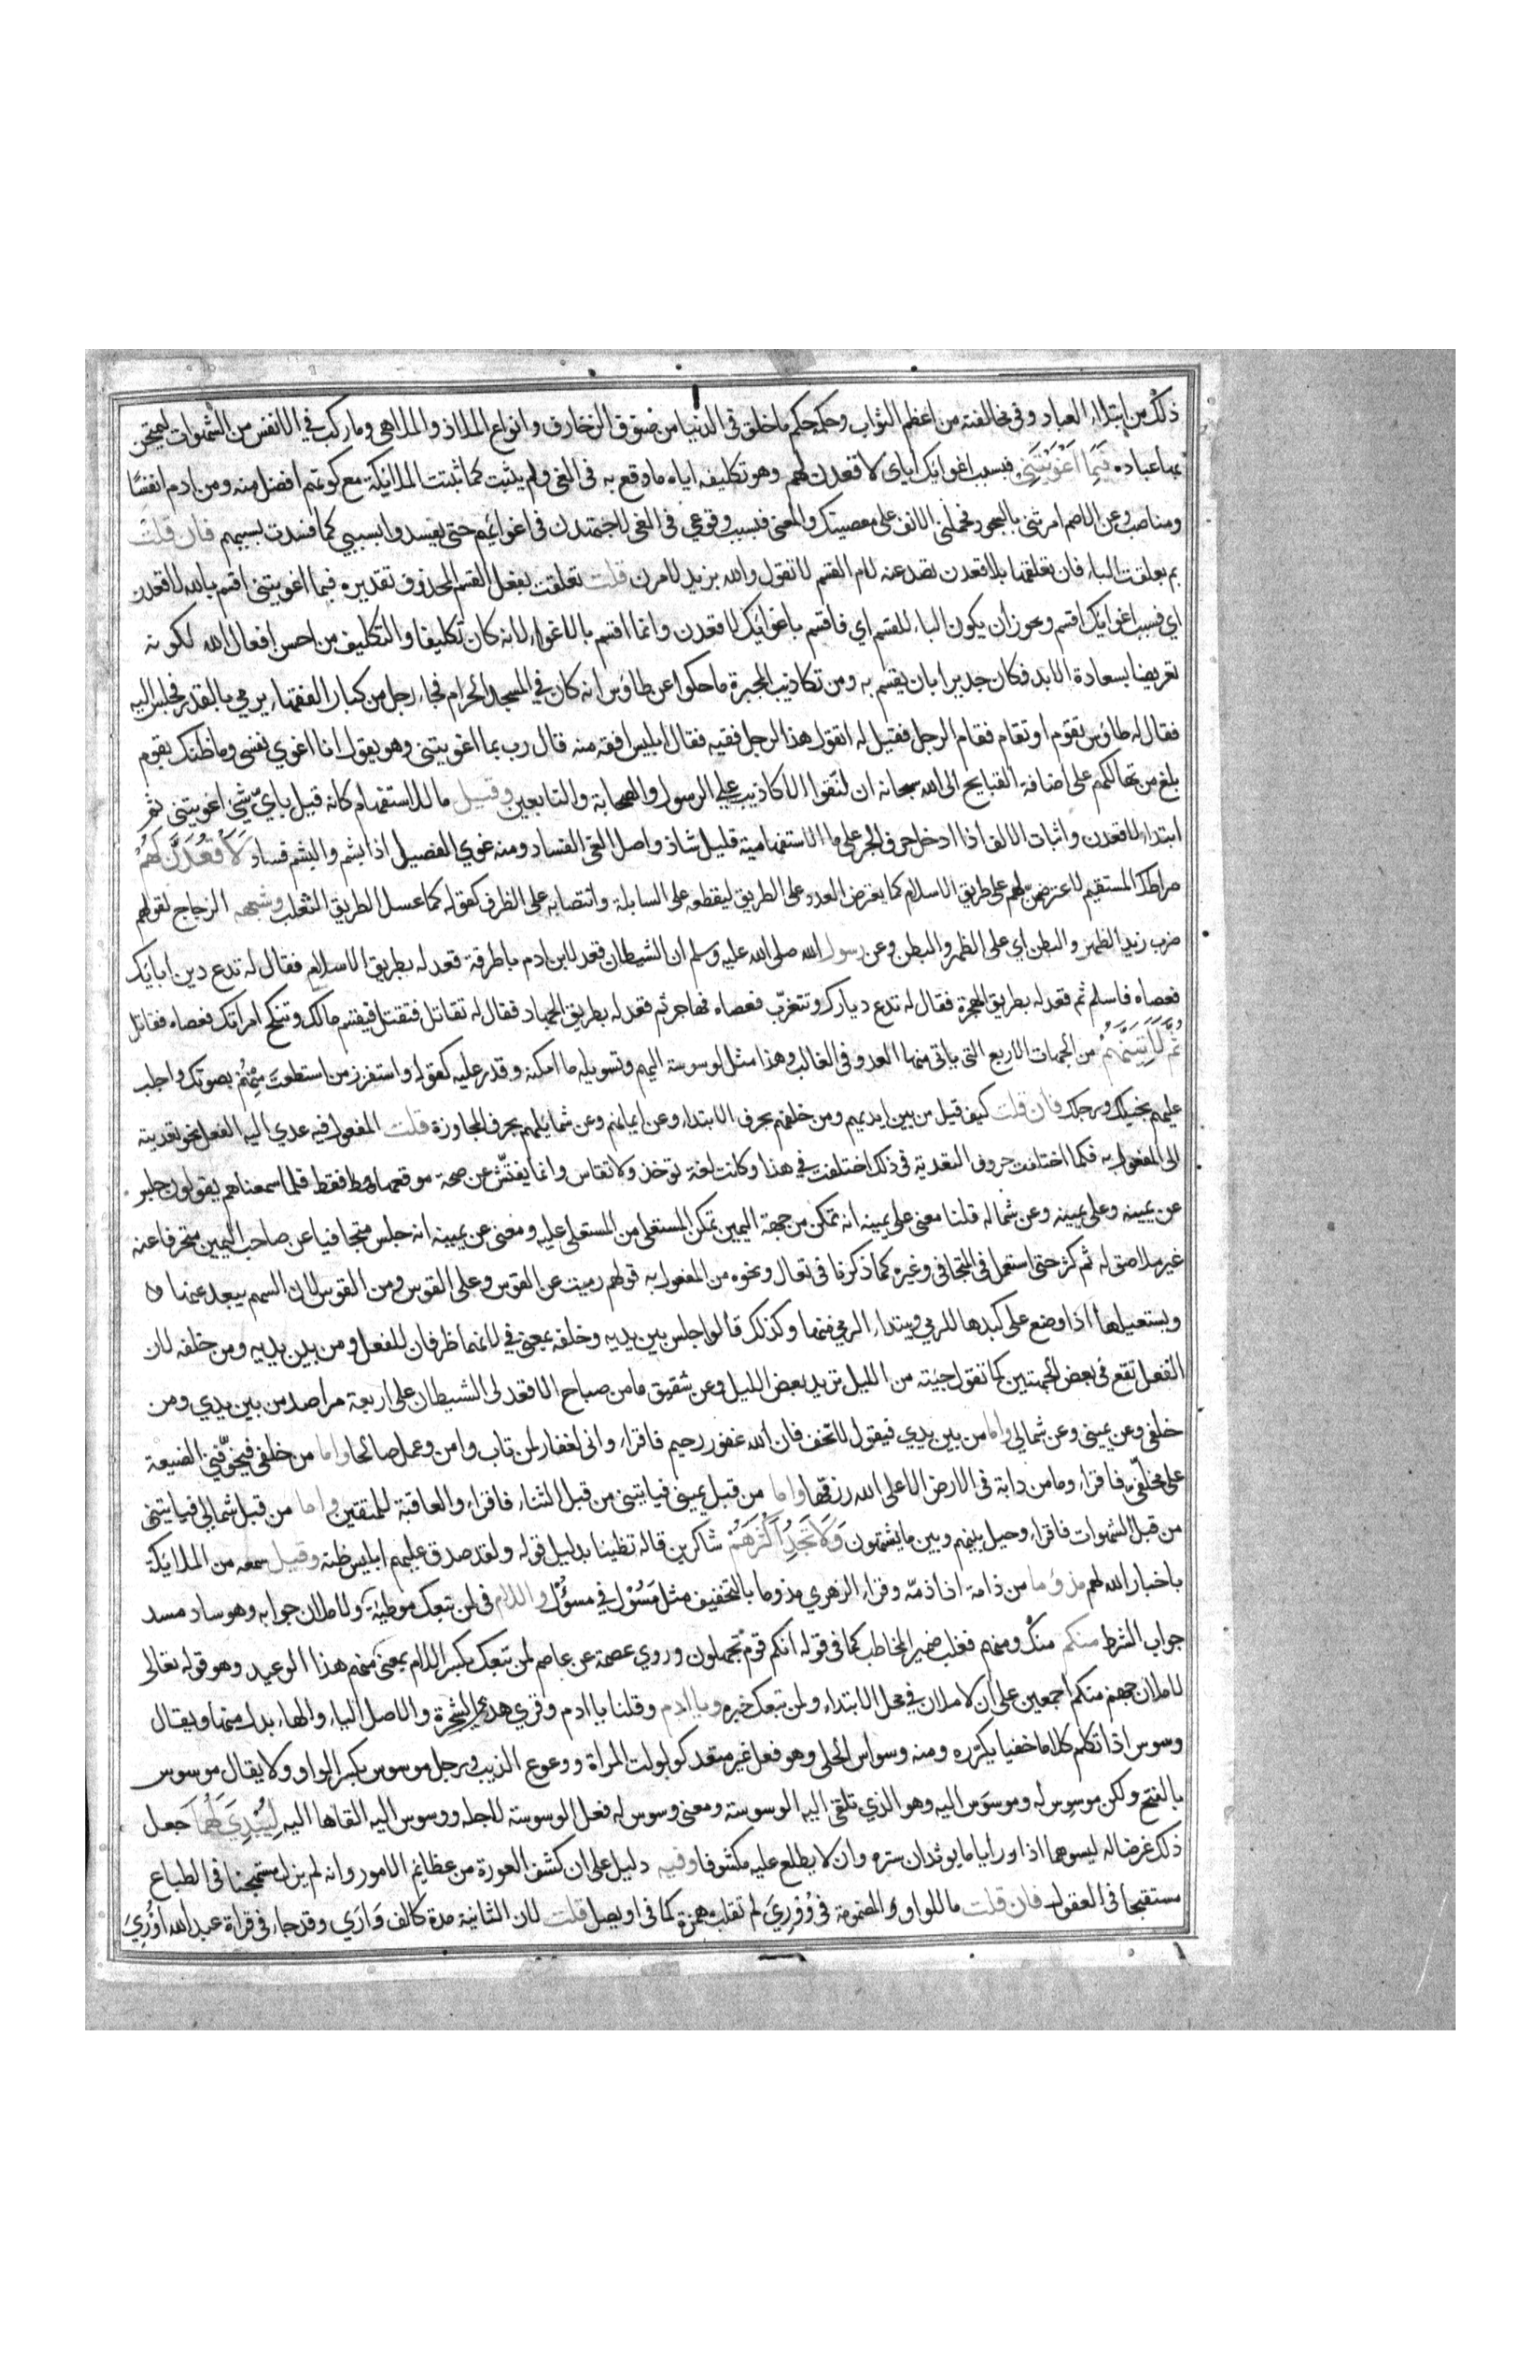 ذلك من ابتلاء العباد وفي مخالفته من اعظم الثواب وحكمه حكم ما خلق في الدنيا من صنوف الزخارف وانواع الملاذ والملاهي وما ركب في الانفس من الشهوات ليمتحن
بها عباده فَبِمَا اَغْوَيْتَنِي فبسبب اغوائك اياى لاقعدن لهم وهو تكليفه اياه ما وقع به فى الغي ولم يثبت كما ثبتت الملائكة مع كونهم افضل منه ومن ادم انفسًا
ومناصب وعن الاصم امرتني بالسجود فحملني الانف على معصيتك والمعنى فبسبب وقوعي فى الغي لاجتهدن فى اغوائهم حتى يفسدوا بسببي كما فسدت بسببهم فان قلت
بم تعلقت الباء فان تعلقها بلاقعدن تصد عنه لام القسم لا تقول والله بزيد لامرن قلت تعلقت بفعل القسم المحذوف تقديره فبما اغويتني اقسم بالله لاقعدن
اي فبسبب اغوائك اقسم ويجوز ان يكون الباء للقسم اي فاقسم باغوائك لاقعدن وانما اقسم بالاغواء لانه كان تكليفا والتكليف من احسن افعال الله لكونه
تعريضا لسعادة الابد فكان جديرا بان يقسم به ومن تكاذيب المجبرة ما حكوا عن طاؤس انه كان في المسجد الحرام فجاء رجل من كبار الفقهاء يرمي بالقدر فجلس اليه
فقال له طاؤس تقوم او تقام فقام الرجل فقيل له اتقول هذا لرجل فقيه فقال ابليس افقه منه قال رب بما اغويتني وهو يقول انا اغوي نفسي وما ظنك بقوم
بلغ من تهالكهم على اضافة القبايح الى الله سبحانه ان لفقوا الاكاذيب على الرسول والصحابة والتابعين وقيل ما للاستفهام كانه قيل باي شئ اغويتني ثم
ابتداء لاقعدن واثبات الالف اذا ادخل حرف الجر على ما الاستفهامية قليل شاذ واصل الغي الفساد ومنه غوي الفصيل اذا بشم والبشم فساد لَاَقْعُدَنَّ لَهُمْ
صراطك المستقيم لاعترضن لهم على طريق الاسلام كما يعترض العدو على الطريق ليقطعه على السابلة وانتصابه على الظرف كقوله كما عسل الطريق الثعلب وشبهه الزجاج لقولهم
ضرب زيد الظهر والبطن اي على الظهر والبطن وعن رسول الله صلى الله عليه وسلم ان الشيطان قعد لابن ادم باطرقه قعد له بطريق الاسلام فقال له تدع دين ابائك
فعصاه فاسلم ثم قعد له بطريق الهجرة فقال له تدع ديارك وتتغرّب فعصاه فهاجر ثم قعد له بطريق الجهاد فقال له تقاتل فتقتل فيقسم مالك وتنكح امراتك فعصاه فقاتل
ثُمَّ لَاٰتِيَنَّهُمْ من الجهات الاربع التي ياتي منها العدو فى الغالب وهذا مثل لوسوسة اليهم وتسويله ما امكنه وقدر عليه كقوله واستفزز من استطعت مِنْهُمْ بصوتك واجلب
عليهم بخيلك ورجلك فان قلت كيف قيل من بين ايديهم ومن خلفهم بحرف الابتداء وعن ايمانهم وعن شمايلهم بحرف المجاوزة قلت المفعول فيه عدي اليه الفعل نحو تعديته
الى المفعول به فكما اختلفت حروف التعدية فى ذلك اختلفت في هذا وكانت لغة توخذ ولا تقاس وانما يفتّش عن صحة موقعها فقط فلما سمعناهم يقولون جلس
عن يمينه وعلى يمينه وعن شماله قلنا معنى على يمينه انه تمكن من جهة اليمين تمكن المستعلى من المستعلى عليه ومعنى عن يمينه انه جلس متجافيا عن صاحب اليمين منحرفا عنه
غير ملاصق له ثم كثر حتى استعمل فى المتجافى وغيره كما ذكرنا فى تعال ونحوه من المفعول به قولهم رميت عن القوس وعلى القوس ومن القوس لان السهم يبعد عنها
ويستعليها اذا وضع على كبدها للرمي ويبتداء الرمي منها وكذلك قالوا جلس بين يديه وخلفه بمعنى في لانهما ظرفان للفعل ومن بين يديه ومن خلفه لان
الفعل تقع فى بعض الجهتين كما تقول جيته من الليل تريد بعض الليل وعن شقيق ما من صباح الا قعد لى الشيطان على اربعة مراصد من بين يدي ومن
خلفي وعن يميني وعن شمالي واما من بين يدي فيقول لا تخف فان الله غفور رحيم فاقراء وانى لغفار لمن تاب وامن وعمل صالحا واما من خلفي فيخوّفني الضيعة
على مخلّفي فاقراء وما من دابة فى الارض الا على الله رزقها واما من قبل يميني فياتيني من قبل الثناء فاقراء والعاقبة للمتقين واما من قبل شمالي فياتيني
من قبل الشهوات فاقراء وحيل بينهم وبين ما يشتهون وَلَا تَجِدُ اَكْثَرَهُمْ شاكرين قاله تظنينا بدليل قوله ولقد صدق عليهم ابليس ظنه وقيل سمعه من الملائكة
باخبار الله لهم مذؤما من ذامه اذا ذمّه وقراء الزهري مذوما بالتخفيف مثل مَسُوْل في مسؤُل واللام فى لمن تبعك موطئة ولاملان جوابه وهو ساد مسد
جواب الشرط منكم منك ومنهم فغلب ضمير المخاطب كما فى قوله انكم قوم تجهلون وروي عصمة عن عاصم لمن تبعك بكسر اللام بمعنى منهم هذا الوعيد وهو قوله تعالى
لاملان جهنم منكم اجمعين على ان لاملان في محل الابتداء ولمن تبعك خبره ويا ادم وقلنا يا ادم وقري هذي الشجرة والاصل الياء والهاء بدل منها ويقال
وسوس اذا تكلم كلاما خفيا يكرّره ومنه وسواس الحلى وهو فعل غير متعد كولولت المراة ووعوع الذيب ورجل موسوس بكسر الواو ولا يقال موسوس
بالفتح ولكن موسوس له وموسوَس اليه وهو الذي تلقى اليه الوسوسة ومعنى وسوس له فعل الوسوسة لاجله ووسوس اليه القاها اليه لِيُبْدِيَ لَهُمَا جعل
ذلك غرضا له ليسوهما اذا رأيا ما يوثران ستره وان لا يطلع عليه مكشوفا وفيه دليل على ان كشف العورة من عظائم الامور وانه لم يزل مستهجنا فى الطباع
مستقبحا فى العقول فان قلت ما للواو المضمومة فى وُوْرِيَ لم تقلب همزة كما فى اويصل قلت لان الثانية مدة كالف وَارَي وقد جاء فى قراة عبد الله اوْرِيَ